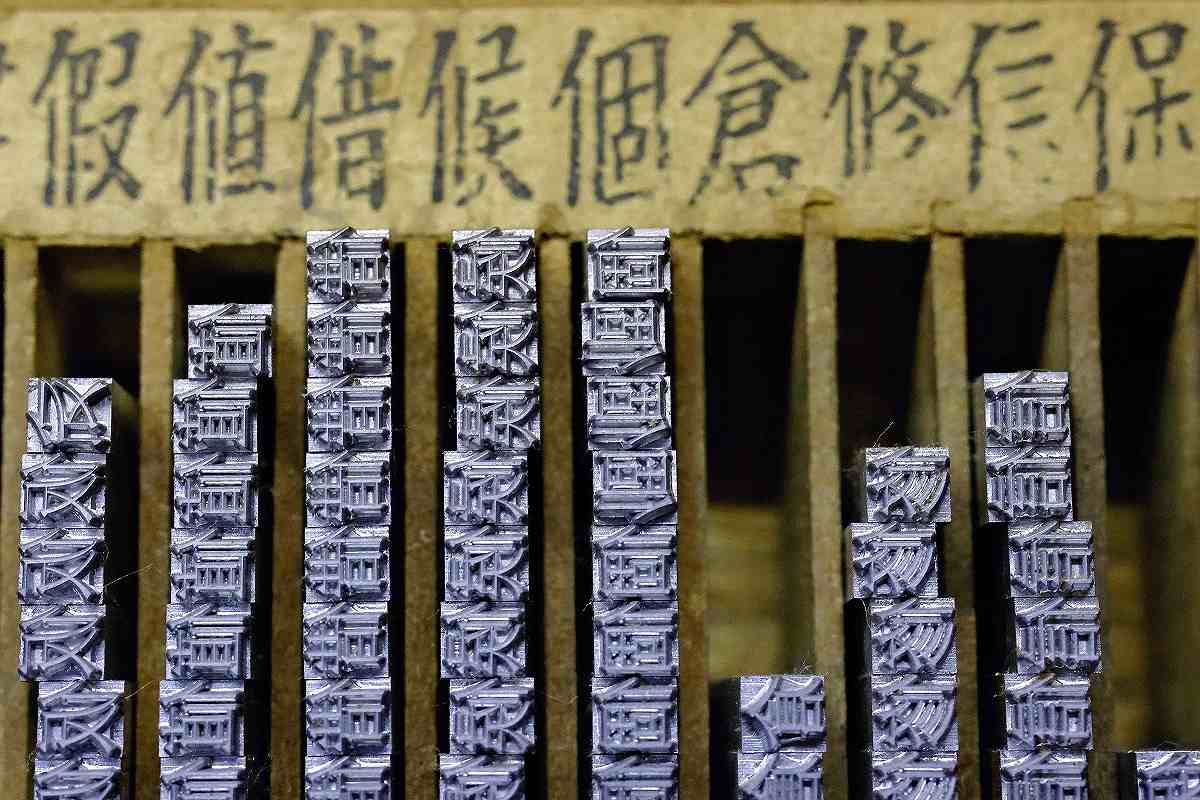 假値借候個倉修信保